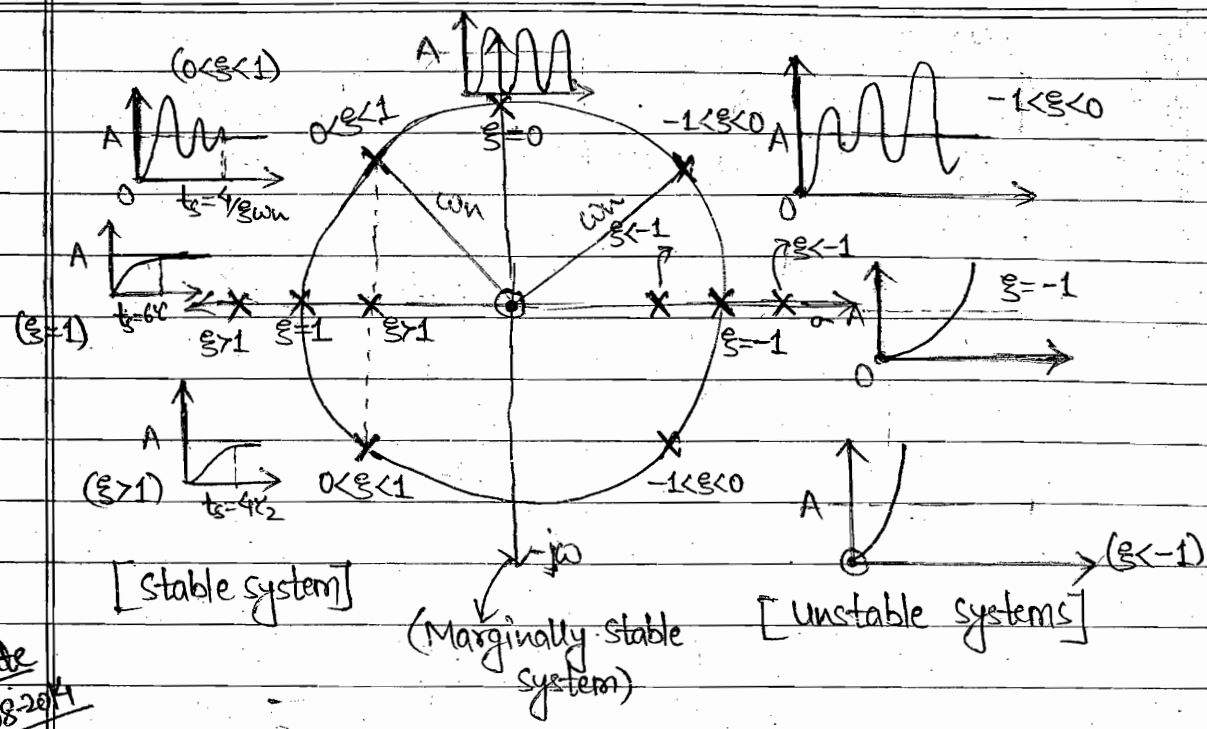 A
(0<ξ<1)
0<ξ<1
ξ=0
-1<ξ<0
A
-1<ξ<0
A
0
ts=4/ξωn
ωn
ωn
ξ<-1
ξ<-1
0
A
ts=6τ
(ξ=1)
ξ>1
ξ=1
ξ>1
ξ=-1
σ
A
ξ=-1
0
A
(ξ>1)
ts=4τ2
0<ξ<1
-1<ξ<0
A
(ξ<-1)
-jω
[stable system]
(Marginally stable
system)
[Unstable systems]